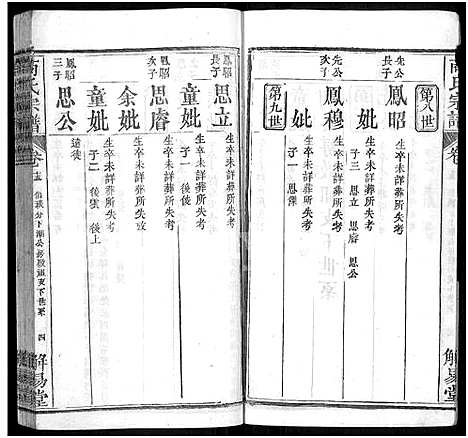 第八世
先公長子
鳳昭
生卒未詳葬所失考
妣
生卒未詳葬所失考
子三 思立 思睿 思公
先公次子
鳳穆
生卒未詳葬所失考
妣
生卒未詳葬所失考
子一 思澤
第九世
解易堂
氏宗譜
卷
鳳昭長子
思立
生卒未詳葬所失考
鳳昭次子
思睿
生卒未詳葬所失考
童妣
生卒未詳葬所失考
子一 後
余妣
生卒未詳葬所失考
童妣
生卒未詳葬所失考
子二 後 後上
鳳昭三子
思公
氏宗譜
卷
四
解易堂